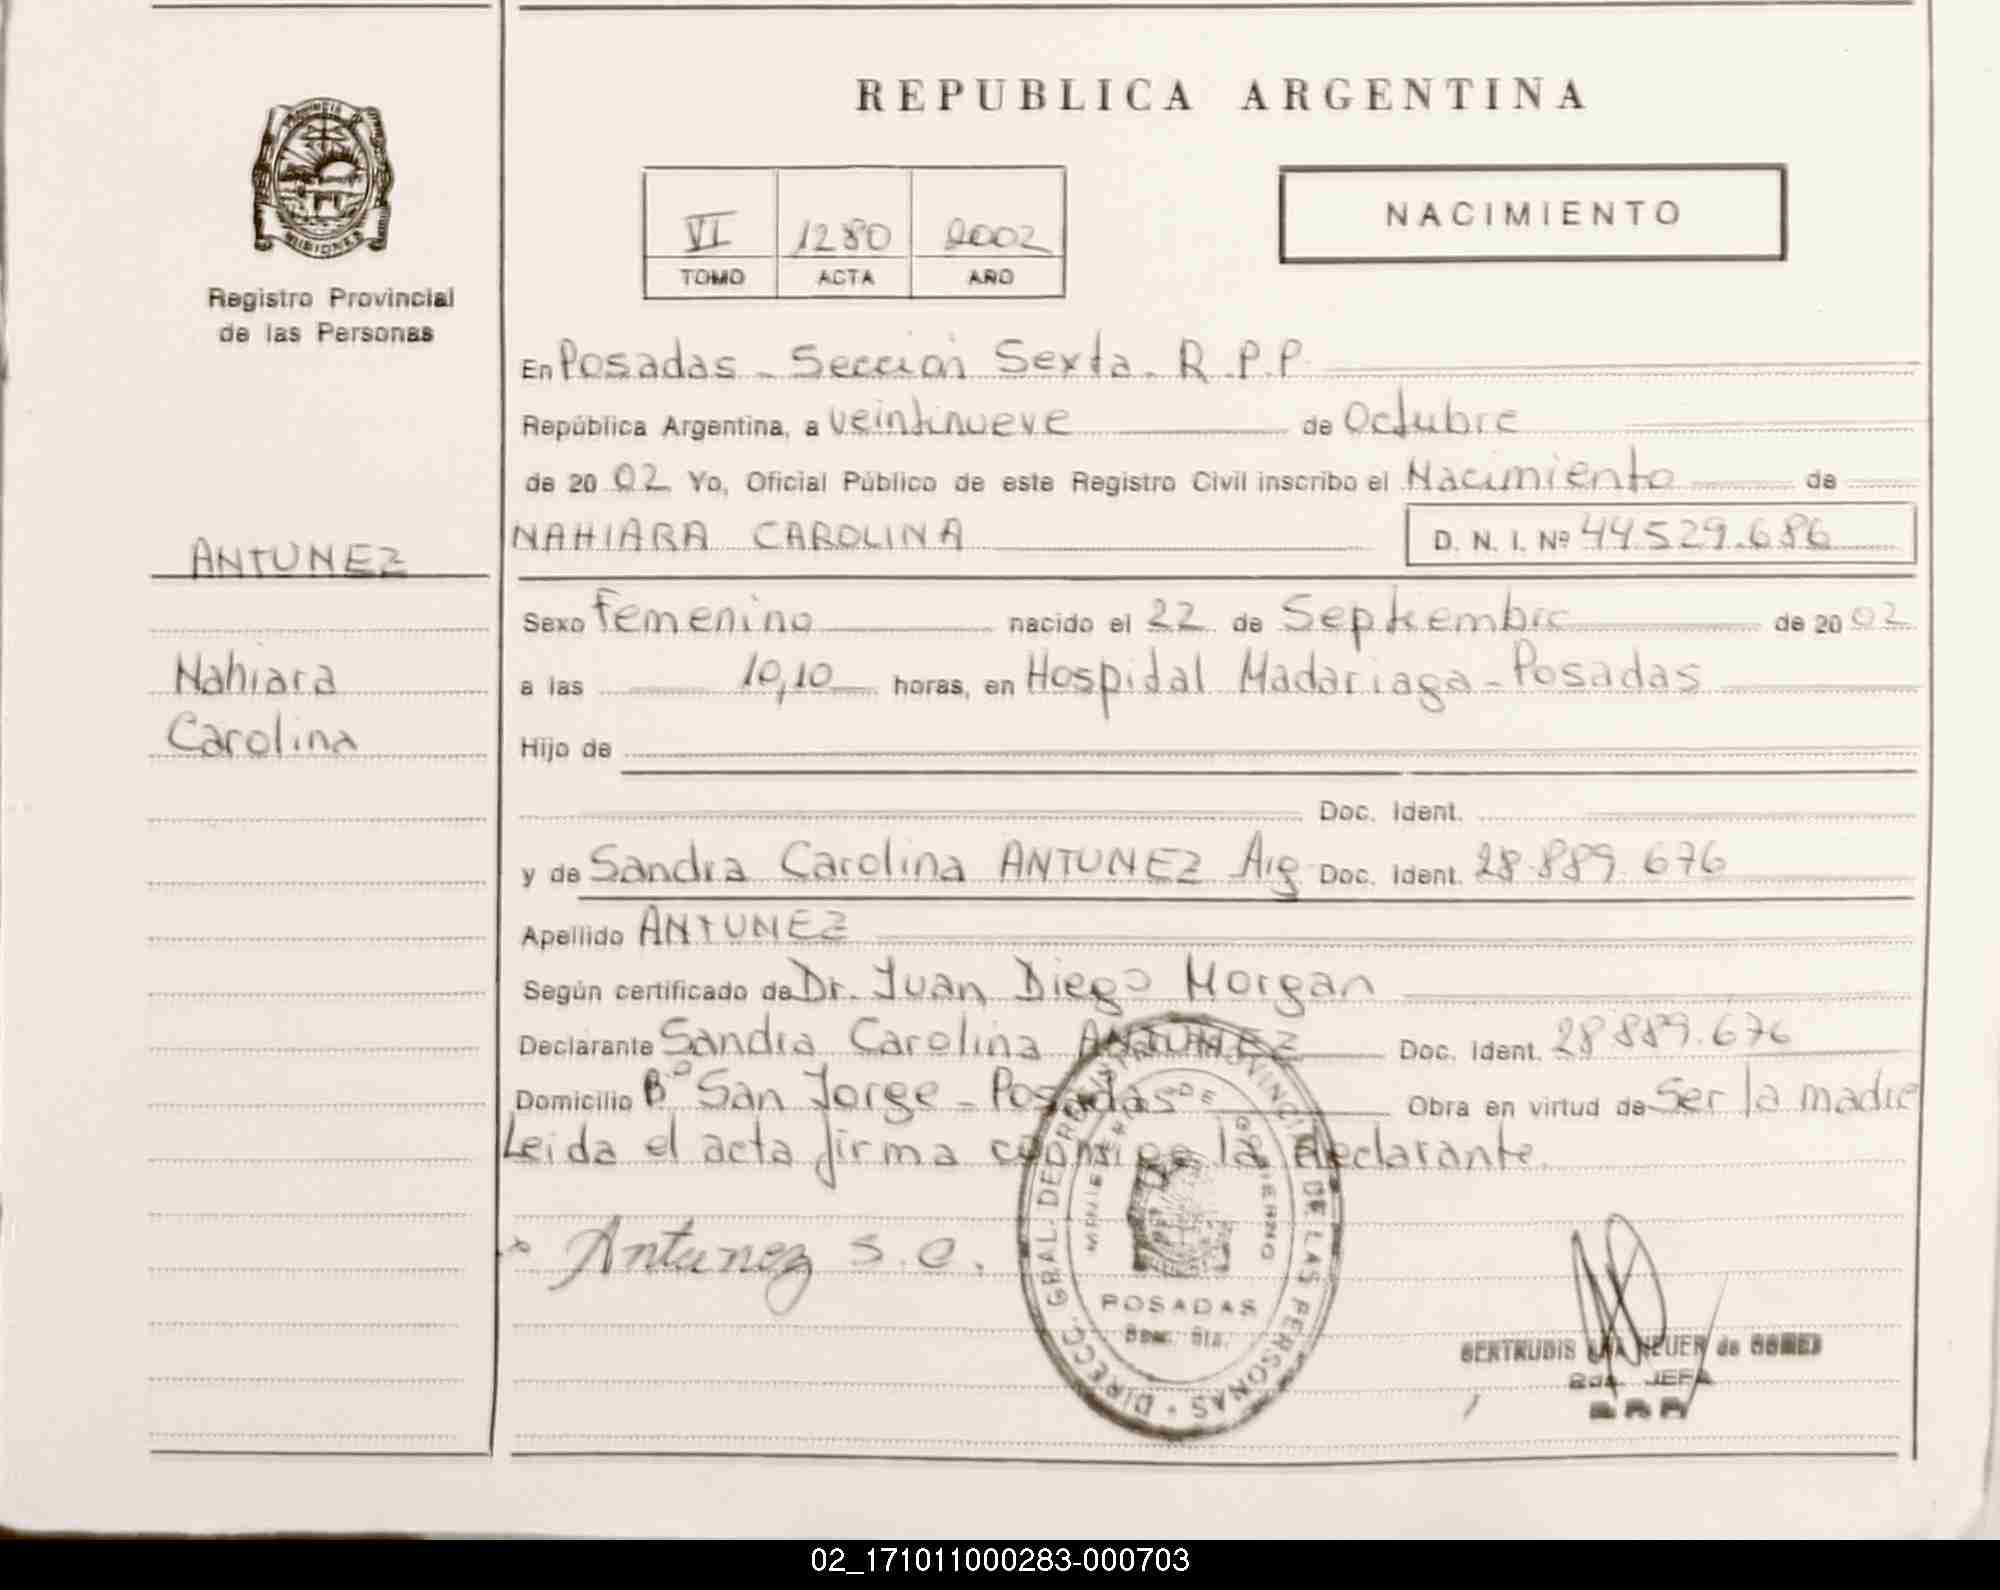 REPUBLICA ARGENTINA
PROVINCIA DE
MISIONES
Registro Provincial
de las Personas
VI 1280 2002
TOMO ACTA AÑO
NACIMIENTO
En Posadas - Sección Sexta. R.P.P.
República Argentina, a veintinueve de Octubre
de 20 02 Yo, Oficial Público de este Registro Civil inscribo el Nacimiento de
ANTUNEZ
NAHIARA CAROLINA D. N. I. Nº 44.529.686
Sexo Femenino nacido el 22 de Septiembre de 20 02
Nahiara
a las 10,10 horas, en Hospital Madariaga - Posadas
Carolina
Hijo de
Doc. Ident.
y de Sandra Carolina ANTUNEZ Arg Doc. Ident. 28.889.676
Apellido ANTUNEZ
Según certificado de Dr. Juan Diego Morgan
Declarante Sandra Carolina ANTUNEZ Doc. Ident. 28.889.676
Domicilio Bº San Jorge - Posadas Obra en virtud de Ser la madre
Leida el acta firma conmigo la declarante.
Antunez S.C.
DIRECC. GRAL. DE REGISTRO PROVINCIAL DE LAS PERSONAS
MINISTERIO DE GOBIERNO
POSADAS
GERTRUDIS NEUER de
JEFA
02_171011000283-000703